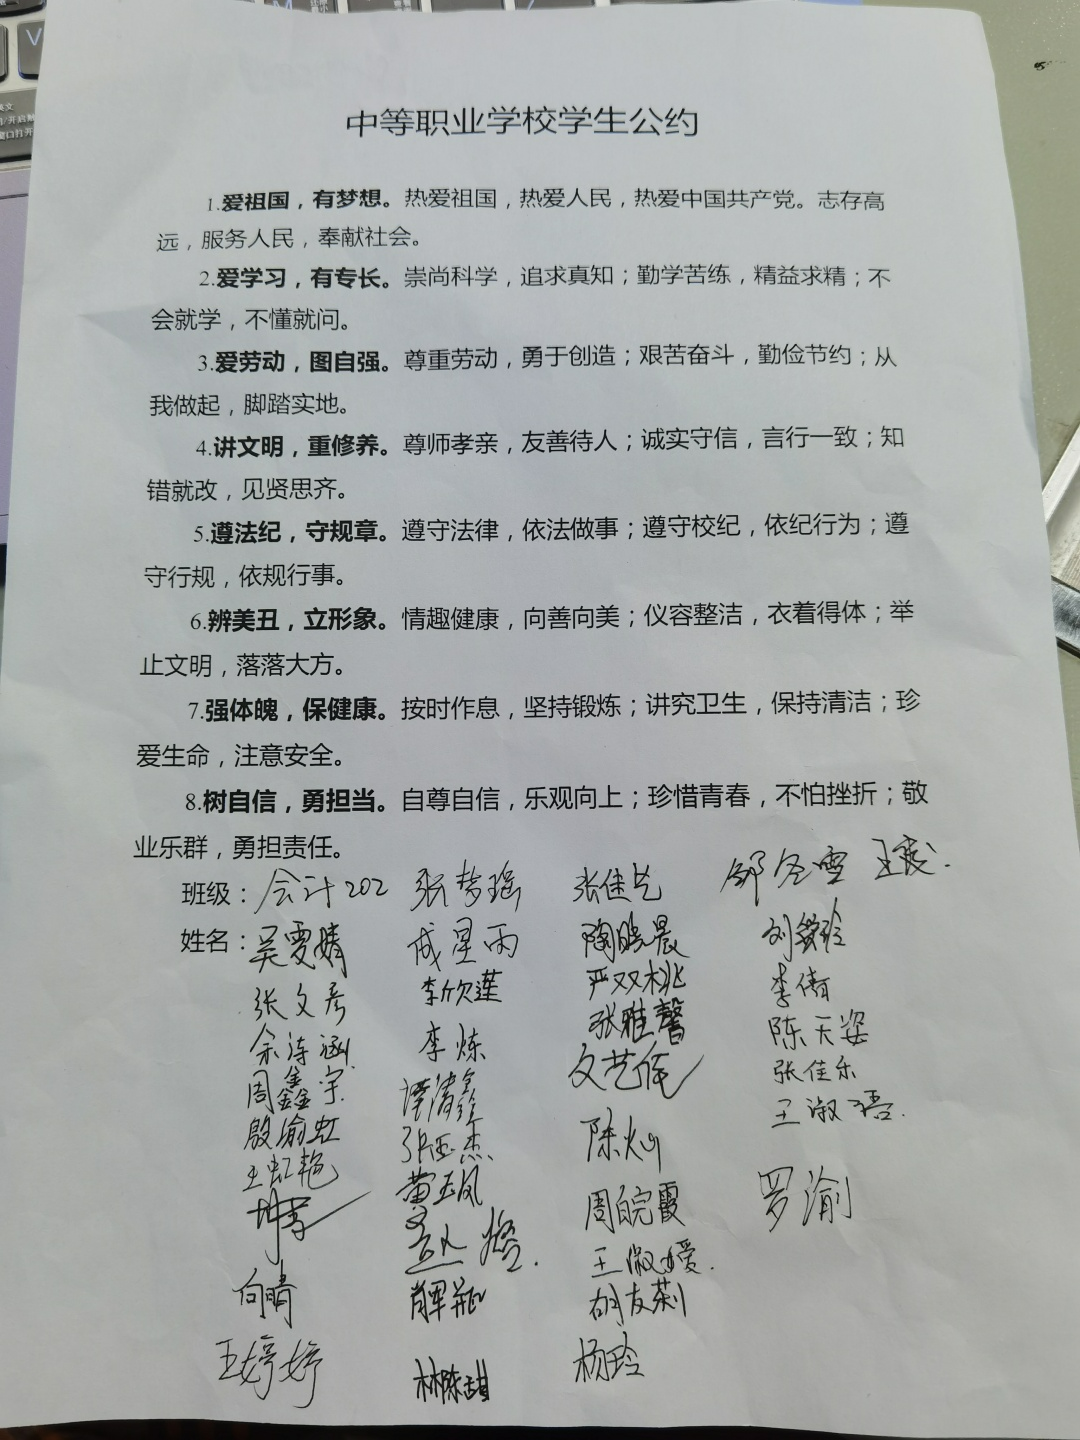 中等职业学校学生公约
1.爱祖国，有梦想。热爱祖国，热爱人民，热爱中国共产党。志存高
远，服务人民，奉献社会。
2.爱学习，有专长。崇尚科学，追求真知；勤学苦练，精益求精；不
会就学，不懂就问。
3.爱劳动，图自强。尊重劳动，勇于创造；艰苦奋斗，勤俭节约；从
我做起，脚踏实地。
4.讲文明，重修养。尊师孝亲，友善待人；诚实守信，言行一致；知
错就改，见贤思齐。
5.遵法纪，守规章。遵守法律，依法做事；遵守校纪，依纪行为；遵
守行规，依规行事。
6.辨美丑，立形象。情趣健康，向善向美；仪容整洁，衣着得体；举
止文明，落落大方。
7.强体魄，保健康。按时作息，坚持锻炼；讲究卫生，保持清洁；珍
爱生命，注意安全。
8.树自信，勇担当。自尊自信，乐观向上；珍惜青春，不怕挫折；敬
业乐群，勇担责任。
班级：会计202 张梦瑶 张佳艺 邹冬雪
姓名：吴雯婧 成星雨 陶晓晨
张文彦 李欣莲 严双桃 李倩
余涛涵 李炼 张雅馨 陈天姿
周鑫宇 谭清鑫 文艺 张佳乐
殷渝虹 张亚杰 陈灿 王淑语
王虹艳 黄玉凤 周皖霞 罗渝
王淑媛
向晴 胡友莉
王婷婷 林陈甜 杨玲